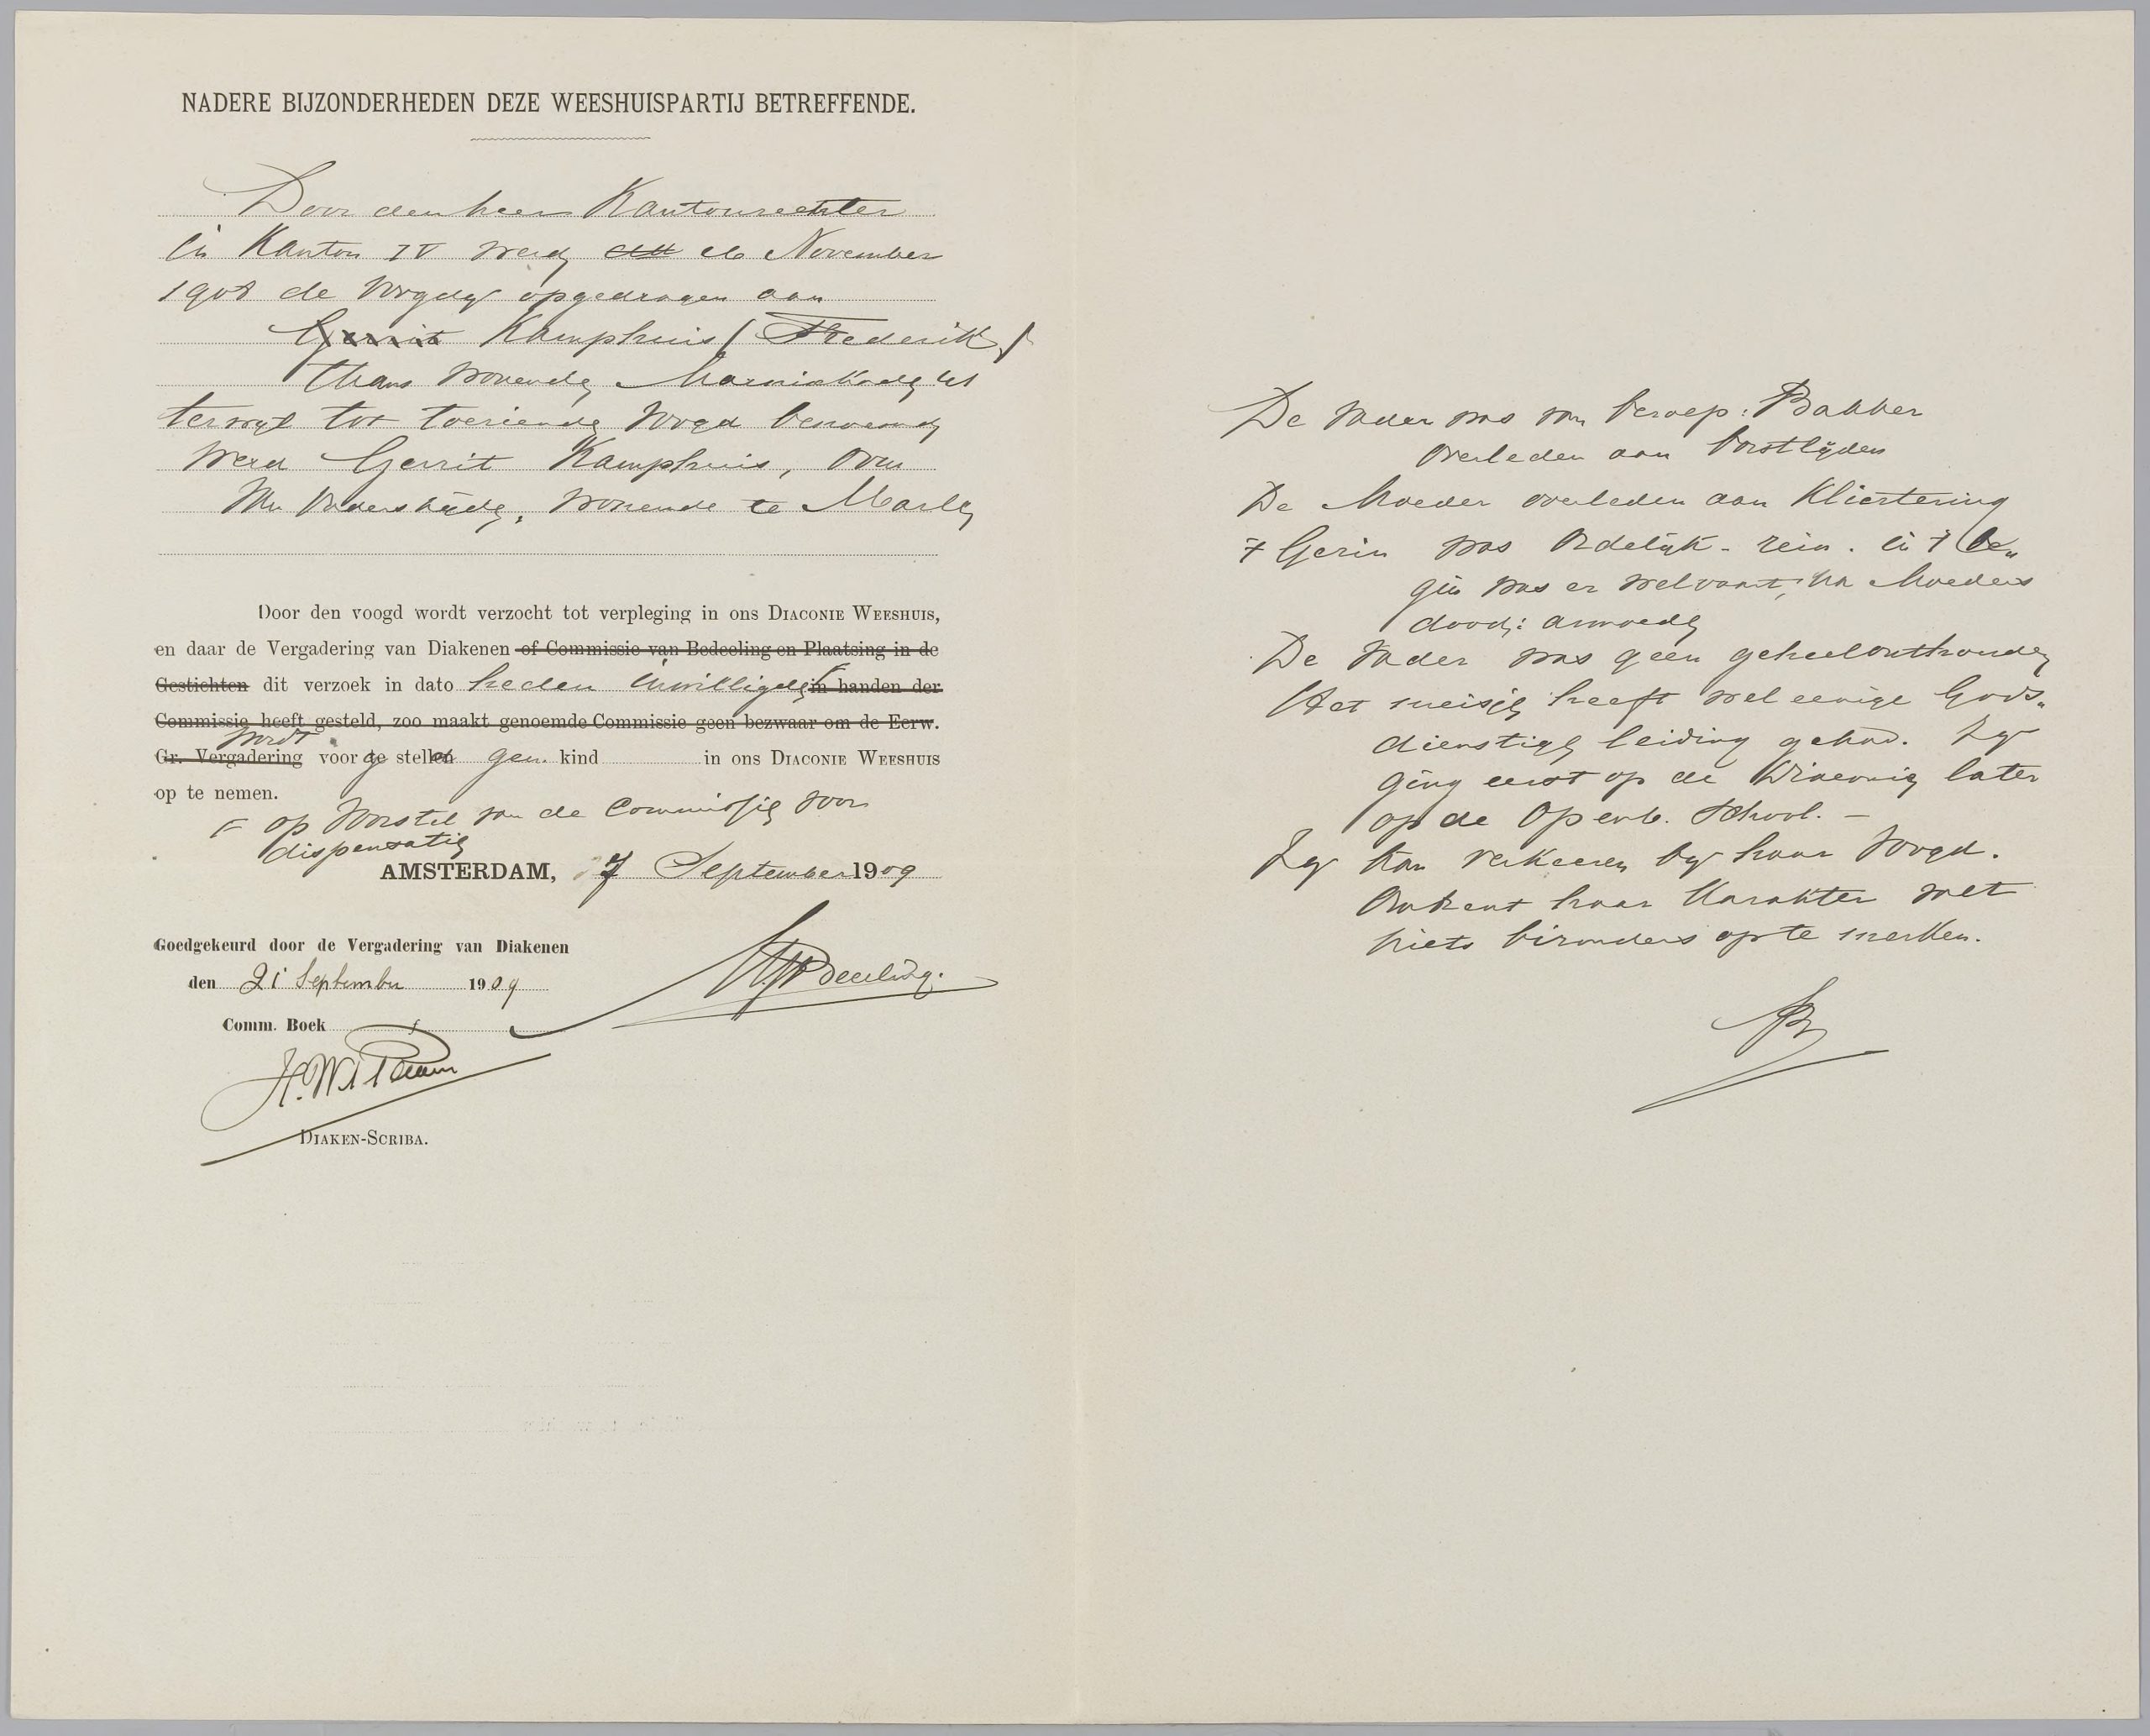 NADERE BIJZONDERHEDEN DEZE WEESHUISPARTIJ BETREFFENDE.
Door den heer Kantonrechter
in Kanton IV werd 16 November
1908 de Voogdij opgedragen aan
Gerrit Kamphuis (Frederik)
thans wonende
terwijl tot toeziende Voogd benoemd
werd Gerrit Kamphuis, Oom
Van Vaderszijde, wonende te Marle
Door den voogd wordt verzocht tot verpleging in ons DIACONIE WEESHUIS,
en daar de Vergadering van Diakenen of Commissie van Bedeeling en Plaatsing in de
Gestichten dit verzoek in dato heden inwilligde, in handen der
Commissie heeft gesteld, zoo maakt genoemde Commissie geen bezwaar om de Eerw.
wordt
Gr. Vergadering voor te stellen gen. kind in ons DIACONIE WEESHUIS
op te nemen.
op Voorstel van de Commissie voor
dispensatie
AMSTERDAM, 7 September 1909
Goedgekeurd door de Vergadering van Diakenen
den 21 September 1909
Comm. Boek
H. W.
DIAKEN-SCRIBA.
De Vader was van beroep: Bakker
Overleden aan borstlijden
De Moeder overleden aan Kliertering
't Gezin was Ordelijk - rein. in 't be„
gin was er welvaart; na Moeders
dood: armoede
De Vader was geen geheelonthouder
Het meisje heeft wel eenige Gods„
dienstige leiding gehad. Zij
ging eerst op de Diaconie later
op de Openb. School. —
Zij kan verkeeren bij haar Voogd.
Omtrent haar Karakter valt
niets bizonders op te merken.